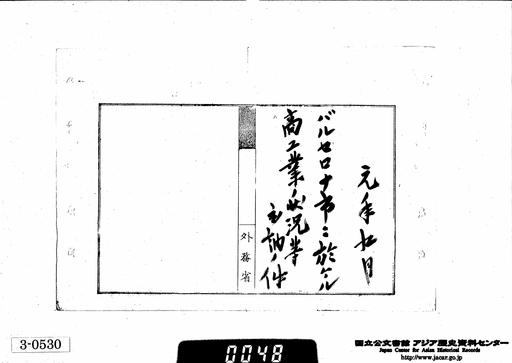 元年 月
バルセロナ市ニ於ケル
商工業ノ状況等
ノ件
外務省
3-0530
0048
国立公文書館 アジア歴史資料センター
Japan Center for Asian Historical Records
http://www.jacar.go.jp